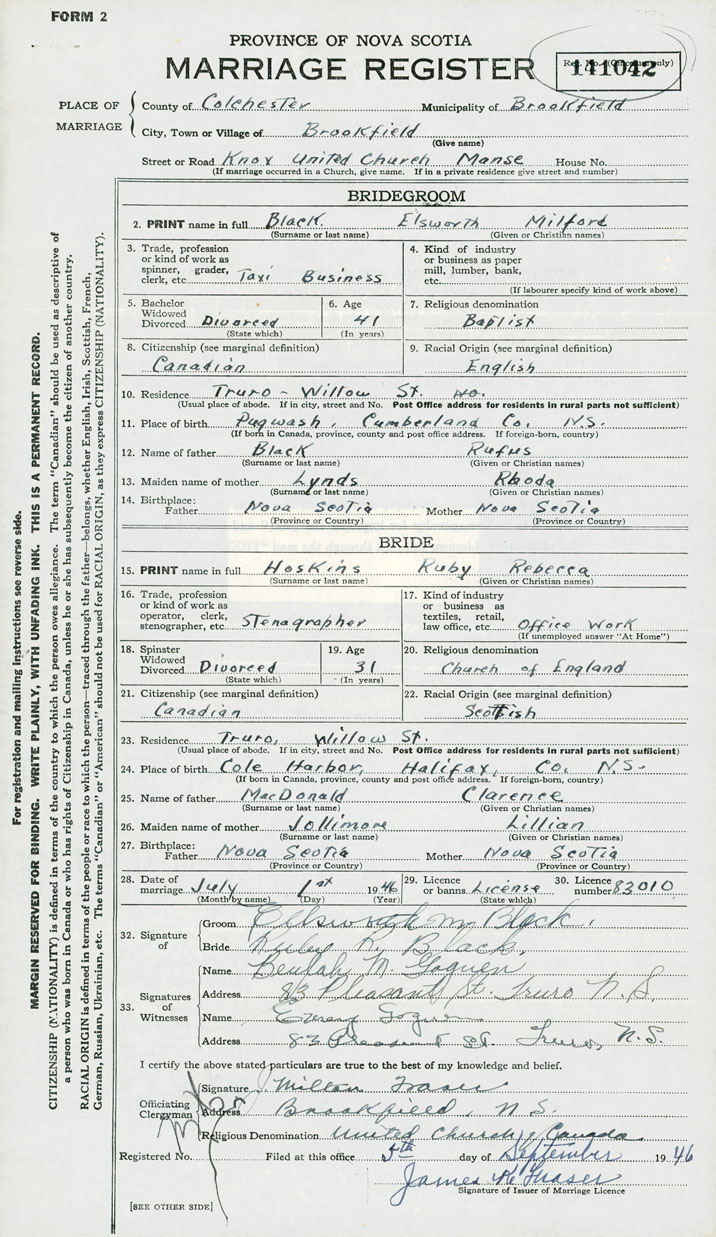 FORM 2
PROVINCE OF NOVA SCOTIA
MARRIAGE REGISTER
Reg. No. (Office use only)
141042
PLACE OF MARRIAGE
County of Colchester Municipality of Brookfield
City, Town or Village of Brookfield
(Give name)
Street or Road Knox United Church Manse House No.
(If marriage occurred in a Church, give name. If in a private residence give street and number)
BRIDEGROOM
2. PRINT name in full Black Elsworth Milford
(Surname or last name) (Given or Christian names)
3. Trade, profession or kind of work as spinner, grader, clerk, etc. Taxi Business
4. Kind of industry or business as paper mill, lumber, bank, etc.
(If labourer specify kind of work above)
5. Bachelor Widowed Divorced Divorced
(State which)
6. Age 41
(In years)
7. Religious denomination
Baptist
8. Citizenship (see marginal definition)
Canadian
9. Racial Origin (see marginal definition)
English
10. Residence Truro - Willow St. No.
(Usual place of abode. If in city, street and No. Post Office address for residents in rural parts not sufficient)
11. Place of birth Pugwash, Cumberland Co. N.S.
(If born in Canada, province, county and post office address. If foreign-born, country)
12. Name of father Black Rufus
(Surname or last name) (Given or Christian names)
13. Maiden name of mother Lynds Rhoda
(Surname or last name) (Given or Christian names)
14. Birthplace:
Father Nova Scotia Mother Nova Scotia
(Province or Country) (Province or Country)
BRIDE
15. PRINT name in full Hoskins Ruby Rebecca
(Surname or last name) (Given or Christian names)
16. Trade, profession or kind of work as operator, clerk, stenographer, etc. Stenagrapher
17. Kind of industry or business as textiles, retail, law office, etc. Office Work
(If unemployed answer "At Home")
18. Spinster Widowed Divorced Divorced
(State which)
19. Age 31
(In years)
20. Religious denomination
Church of England
21. Citizenship (see marginal definition)
Canadian
22. Racial Origin (see marginal definition)
Scottish
23. Residence Truro, Willow St.
(Usual place of abode. If in city, street and No. Post Office address for residents in rural parts not sufficient)
24. Place of birth Cole Harbor, Halifax, Co. N.S.
(If born in Canada, province, county and post office address. If foreign-born, country)
25. Name of father MacDonald Clarence
(Surname or last name) (Given or Christian names)
26. Maiden name of mother Jollimore Lillian
(Surname or last name) (Given or Christian names)
27. Birthplace:
Father Nova Scotia Mother Nova Scotia
(Province or Country) (Province or Country)
28. Date of marriage July 1st 1946
(Month by name) (Day) (Year)
29. Licence or banns License
(State which)
30. Licence number 83010
32. Signature of
Groom Ellsworth M Black.
Bride Ruby R. Black.
33. Signatures of Witnesses
Name Beulah M. Goguen
Address 83 Pleasant St. Truro N.S.
Name Goguen
Address 83 Pleasant St. Truro, N.S.
I certify the above stated particulars are true to the best of my knowledge and belief.
Officiating Clergyman
Signature J. Milton Fraser
Address Brookfield, N.S.
Religious Denomination United Church of Canada
Registered No. Filed at this office 5th day of September 1946
James K Fraser
Signature of Issuer of Marriage Licence
[SEE OTHER SIDE]
For registration and mailing instructions see reverse side.
MARGIN RESERVED FOR BINDING. WRITE PLAINLY, WITH UNFADING INK. THIS IS A PERMANENT RECORD.
CITIZENSHIP (NATIONALITY) is defined in terms of the country to which the person owes allegiance. The term "Canadian" should be used as descriptive of
a person who was born in Canada or who has rights of Citizenship in Canada, unless he or she has subsequently become the citizen of another country.
RACIAL ORIGIN is defined in terms of the people or race to which the person—traced through the father—belongs, whether English, Irish, Scottish, French,
German, Russian, Ukrainian, etc. The terms "Canadian" or "American" should not be used for RACIAL ORIGIN, as they express CITIZENSHIP (NATIONALITY).